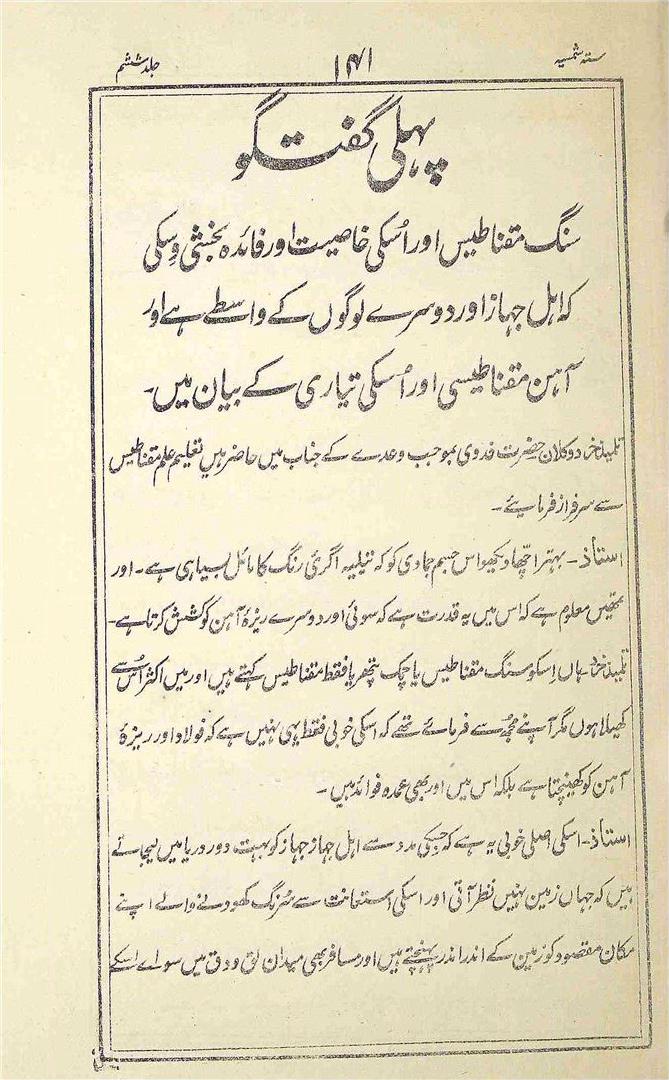 ستہ شمسیہ ۱۴۱ جلد ششم
پہلی گفتگو
سنگ مقناطیس اور اُسکی خاصیت اور فائدہ بخشی وسکی
کہ اہل جہاز اور دوسرے لوگوں کے واسطے ہے اور
آہن مقناطیسی اور اُسکی تیاری کے بیان میں۔
تلمیذ خرد وکلان حضرت فدوی بموجب وعدے کے جناب میں حاضر ہیں تعلیم علم مقناطیس
سے سرفراز فرمایئے۔
استاذ۔ بہتر اچھا دیکھو اس جسم جمادی کو کہ تیلیہ اگرئ رنگ کا مائل بسیاہی ہے۔ اور
تمھیں معلوم ہے کہ اس میں یہ قدرت ہے کہ سوئی اور دوسرے ریزۂ آہن کو کشش کرتا ہے۔
تلمیذ خرد۔ ہاں اِسکو سنگ مقناطیس یا چمک پتھر یا فقط مقناطیس کہتے ہیں اور میں اکثر اُس سے
کھیلا ہوں مگر آپنے مجھ سے فرمائے تھے کہ اسکی خوبی فقط یہی نہیں ہے کہ فولاد اور ریزۂ
آہن کو کھینچتا ہے بلکہ اس میں اور بھی عمدہ فوائد ہیں۔
استاذ۔ اسکی اصلی خوبی یہ ہے کہ جسکی مدد سے اہل جہاز جہاز کو بہت دور دریا میں لیجاتے
ہیں کہ جہاں زمین نہیں نظر آتی اور اسکی استعانت سے سُرنگ کھودنے والے اپنے
مکان مقصود کو زمین کے اندر اندر پہنچتے ہیں اور مسافر بھی میدان لق و دق میں سواے اسکے